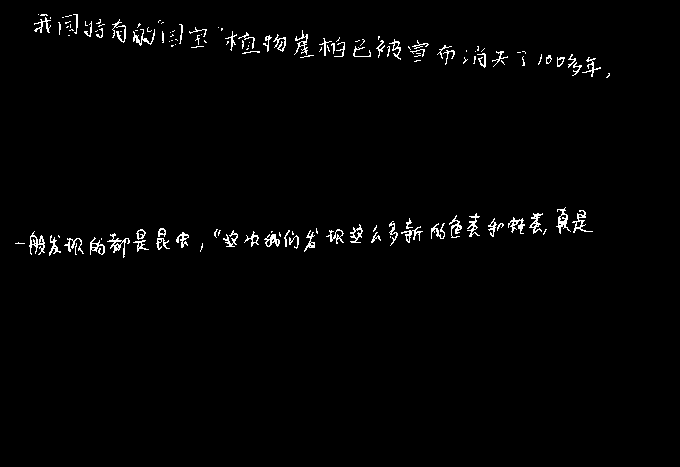 我国特有的"国宝"植物崖柏已被宣布消失了100多年,
一般发现的都是昆虫,"这次我们发现这么多新的鱼类和蛙类,真是